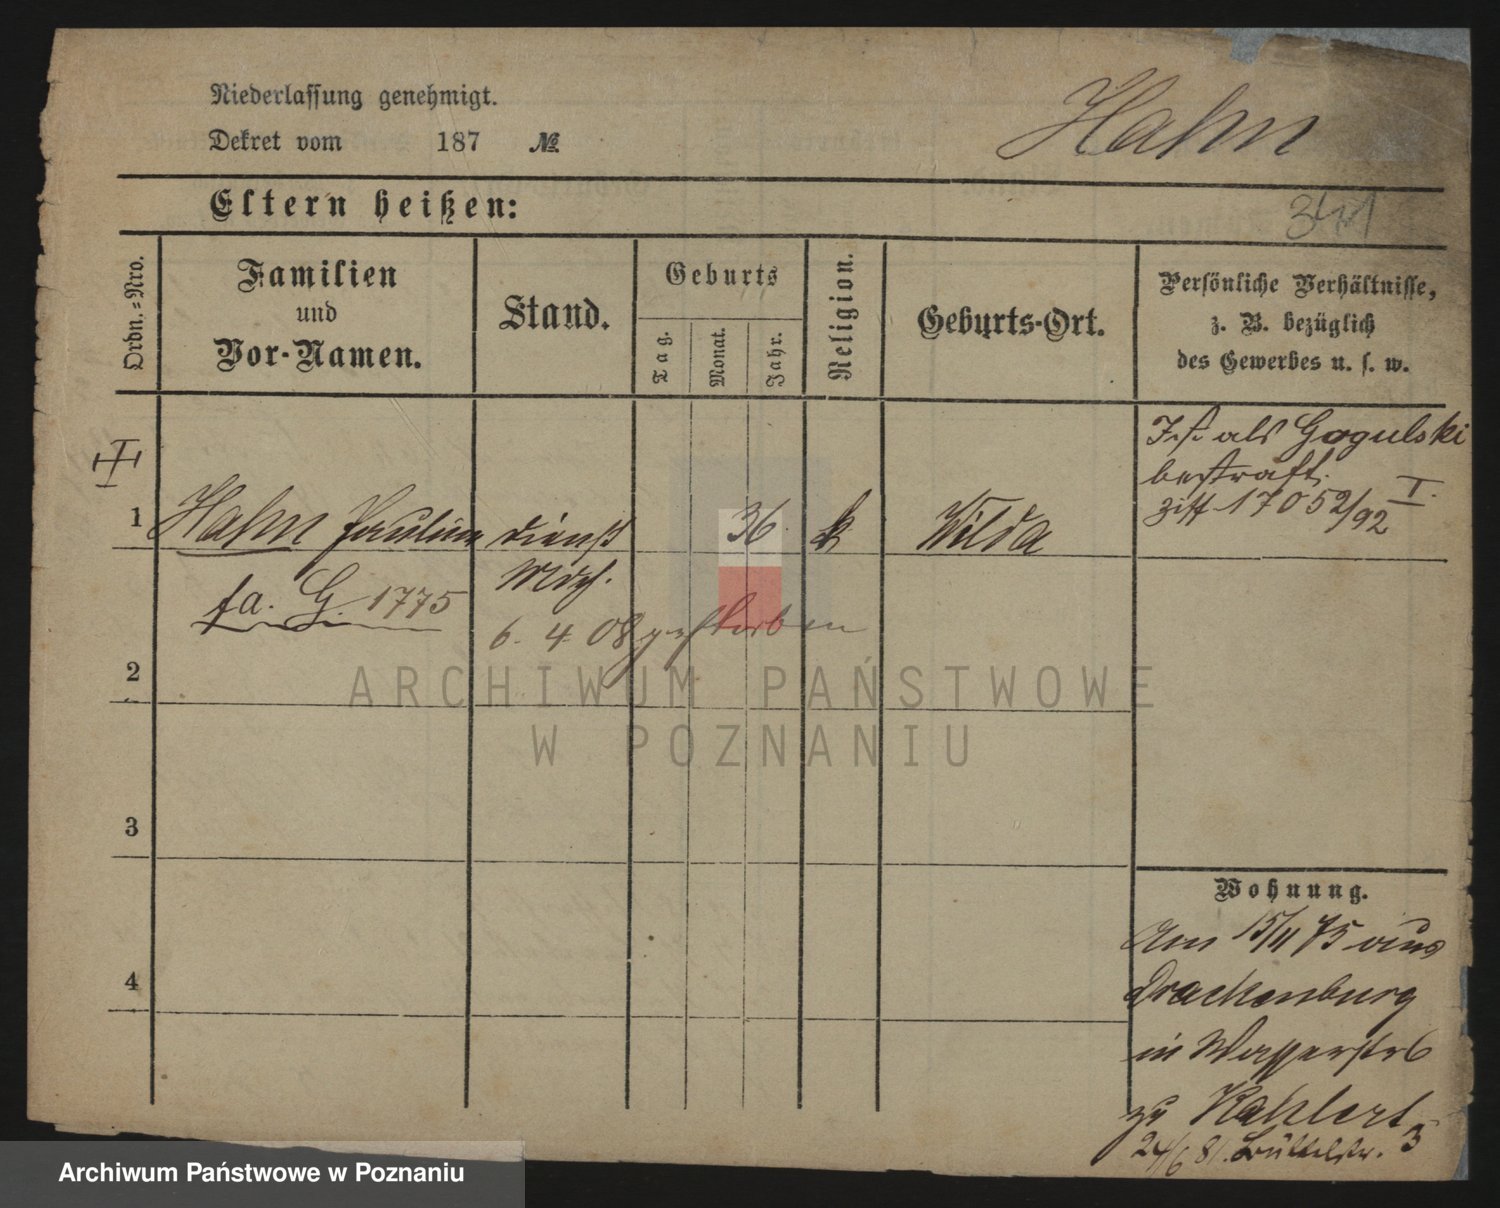 Niederlassung genehmigt.
Dekret vom 187 №
Hahn
Eltern heißen:
341
Ordn.=Nro.
Familien
und
Vor-Namen.
Stand.
Geburts
Tag.
Monat.
Jahr.
Religion.
Geburts-Ort.
Persönliche Verhältnisse,
z. B. bezüglich
des Gewerbes u. s. w.
Ist als Gogulski
bestraft.
I.
17052/92
1 Hahn Pauline dienst 36 k Wilda
Mdch.
fa. G. 1775
6. 4. 08 gestorben
2
3
4
Wohnung.
Am 15/11 75 aus
Drachenburg
in Wasserstr 6
zu Kahlert
24/6 81. Büttelstr. 3
ARCHIWUM PAŃSTWOWE
W POZNANIU
Archiwum Państwowe w Poznaniu